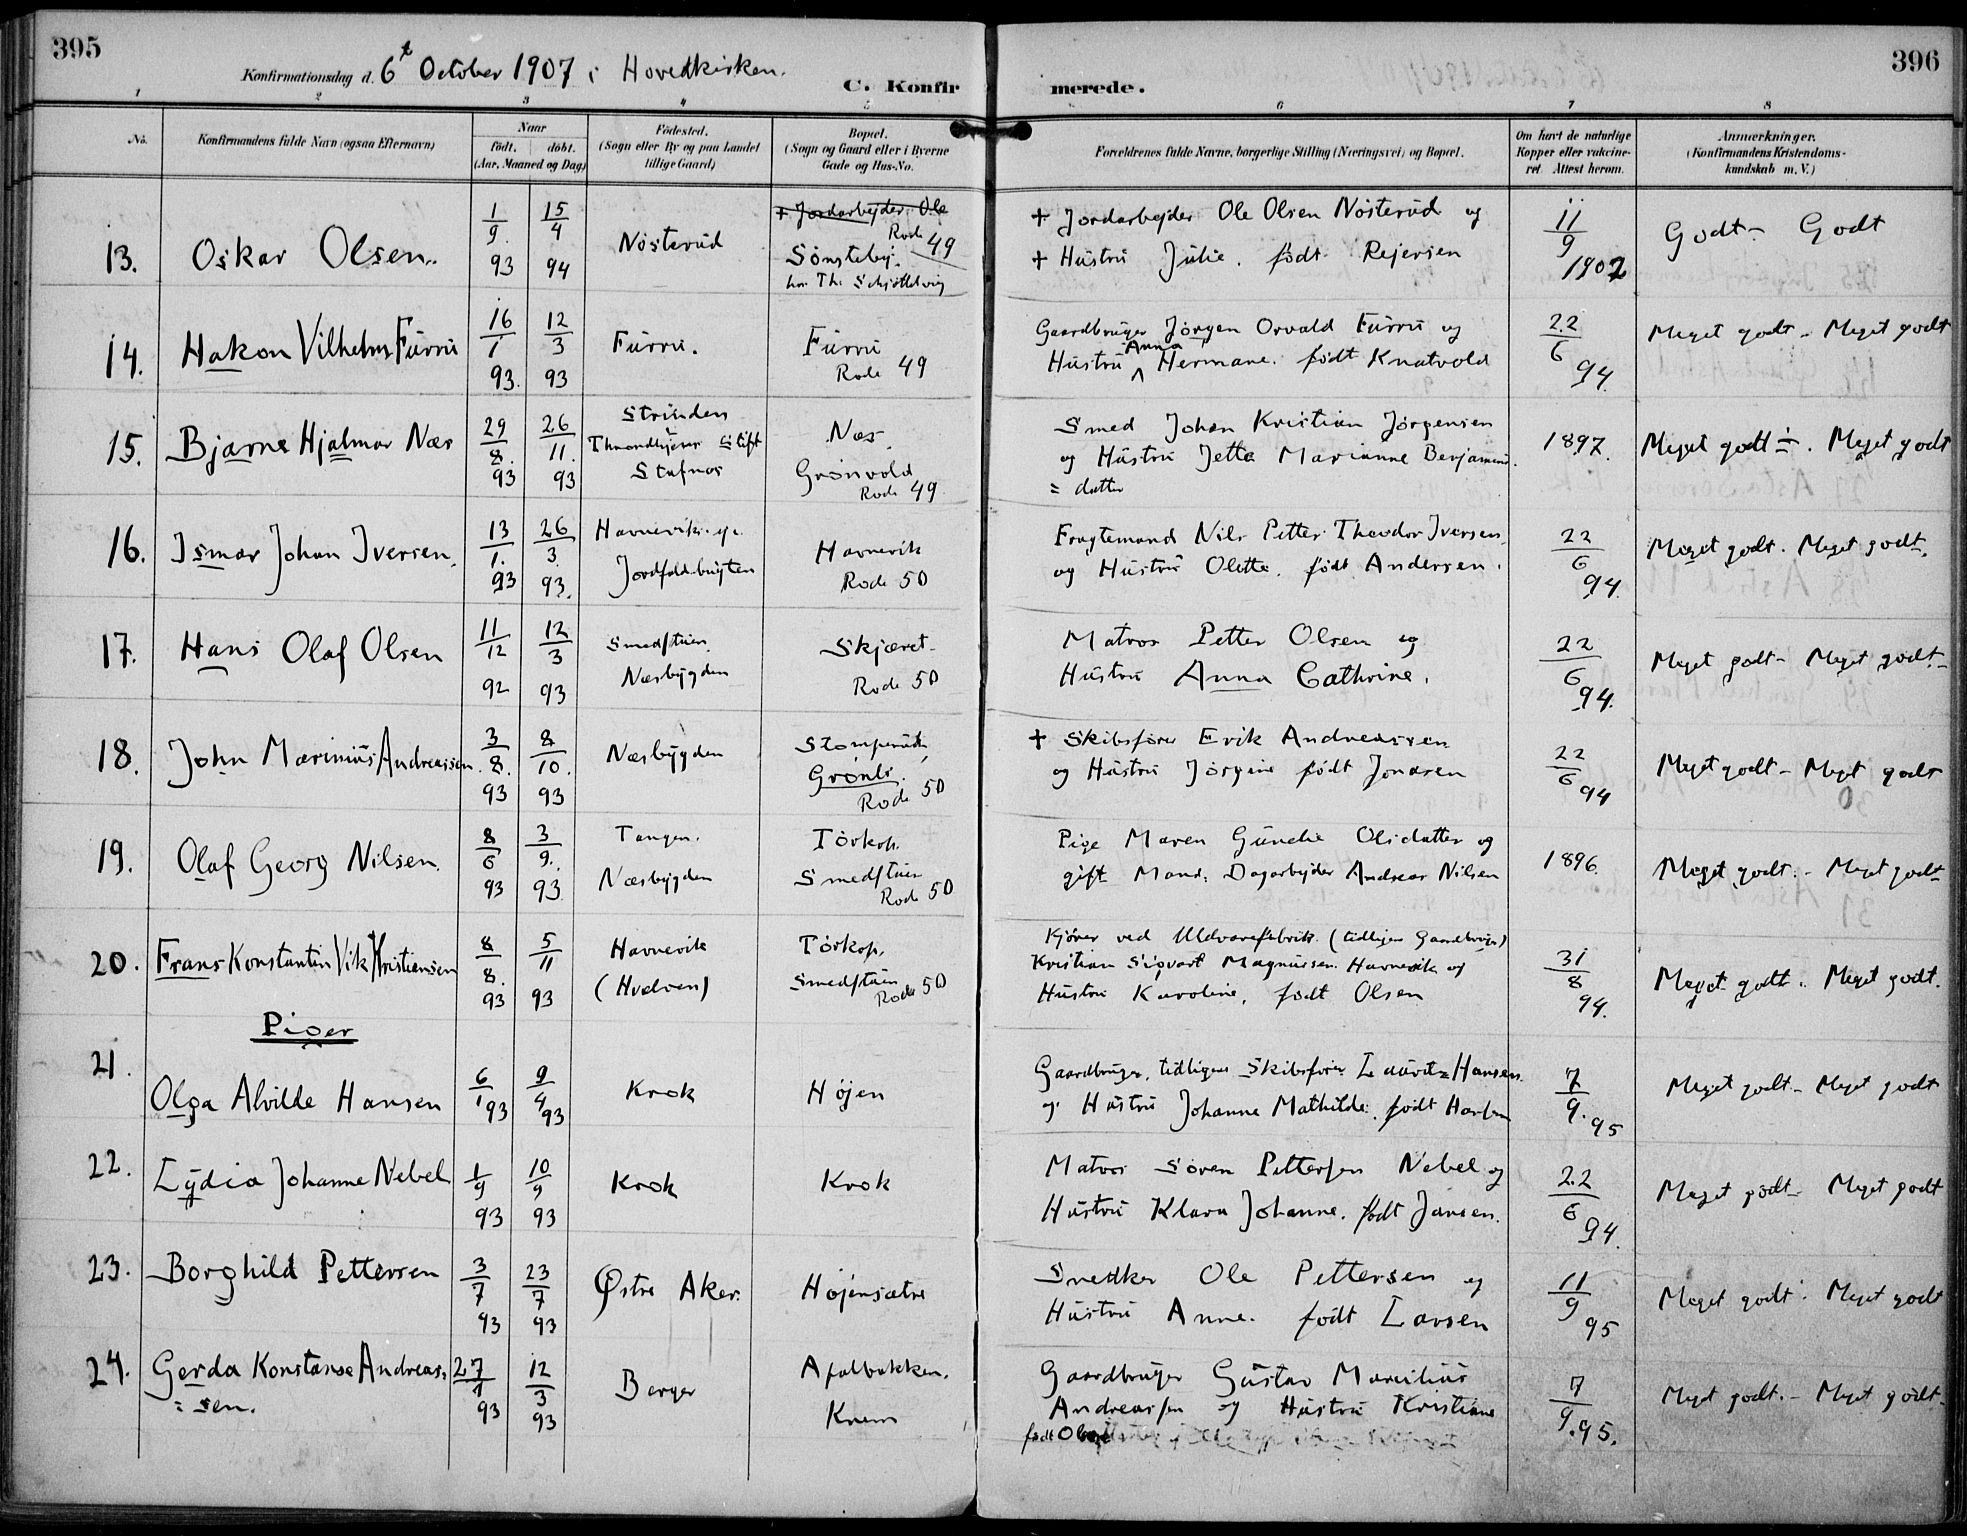 395
396
Konfirmationsdag d. 6t October 1907 i Hovedkirken.
C. Konfir merede.
1 2 3 4 5 6 7 8
No.
Konfirmandens fulde Navn (ogsaa Efternavn)
Naar
født. døbt.
(Aar, Maaned og Dag)
Fødested.
(Sogn eller By og paa Landet
tillige Gaard)
Bopæl.
(Sogn og Gaard eller i Byerne
Gade og Hus-No.
Forældrenes fulde Navne, borgerlige Stilling (Næringsvei) og Bopæl.
Om havt de naturlige
Kopper eller vakcine-
ret. Attest herom.
Anmærkninger.
(Konfirmandens Kristendoms-
kundskab m. V.)
13. Oskar Olsen.
1/9 93
15/4 94
Nösterud
+ Jordarbejder Ole
Rode 49
Sønsteby.
hos Th.
+ Jordarbejder Ole Olsen Nösterud og
+ Hustru Julie. født Rejersen
11/9 1902
Godt - Godt
14. Hakon Vilhelm Furru
16/1 93.
12/3 93
Furru.
Furru
Rode 49
Gaardbruger Jørgen Orvald Furru og
Hustru Anna Hermane. født Knatvold
22/6 94.
Meget godt - Meget godt
15. Bjarne Hjalmar Næs
29/8. 93
26/11. 93
Strinden
Throndhjems Stift
Stafnæs
Næs.
Grønvold
Rode 49
Smed Johan Kristian Jørgensen
og Hustru Jette Marianne Benjamins
= datter
1897.
Meget godt ÷. Meget godt
16. Ismar Johan Iversen.
13/1. 93
26/3. 93.
Havnevik. ej.
Jordfaldbugten
Havnevik
Rode 50
Fragtemand Nils Petter Theodor Iversen.
og Hustru Olette. født Andersen.
22/6 94.
Meget godt. Meget godt.
17. Hans Olaf Olsen
11/12 92
12/3 93
Smedstuen.
Næsbygden
Skjæret.
Rode 50
Matros Petter Olsen og
Hustru Anna Cathrine.
22/6 94.
Meget godt - Meget godt -
18. John Marinius Andreassen.
3/8. 93
8/10. 93
Næsbygden
Stomperud
Grønli.
Rode 50
+ Skibsfører Erik Andreassen
og Hustru Jörgine født Jonasen
22/6 94
Meget godt - Meget godt
19. Olaf Georg Nilsen.
8/6 93
3/9. 93
Tangen.
Næsbygden
Torkop.
Smedstuen
Rode 50
Pige Maren Gunelie Olsdatter og
gift Mand: Dagarbejder Andreas Nilsen
1896.
Meget godt. - Meget godt
20. Frans Konstantin Vik Kristiansen
8/8. 93
5/11 93
Havnevik
(Hvalven)
Torkop.
Smedstuen
Rode 50
Kjører ved Uldvarefabrik. (tidligere Gaardbruger)
Kristian Sigvart Magnussen. Havnevik og
Hustru Karoline, født Olsen
31/8 94.
Meget godt. Meget godt.
Piger
21. Olga Alvilde Hansen
6/1 93
9/4 93
Krok
Højen
Gaardbruger, tidligere Skibsfører Lauritz Hansen.
og Hustru Johanne Mathilde. født
7/9. 95
Meget godt - Meget godt
22. Lydia Johanne Nebel
1/9 93
10/9 93
Krok
Krok
Matros Søren Pettersen Nebel og
Hustru Klara Johanne. født Jansen.
22/6 94.
Meget godt - Meget godt
23. Borghild Pettersen
3/7 93
23/7 93
Østre Aker.
Højensætre
Snedker Ole Pettersen og
Hustru Anne. født Larsen
11/9 95
Meget godt. Meget godt
24. Gerda Konstanse Andreas=
=sen.
27/1 93
12/3 93
Berger
Apalbakken.
Knem
Gaardbruger Gustav Marilius
Andreassen og Hustru Kristiane
født
7/9. 95.
Meget godt. - Meget godt.